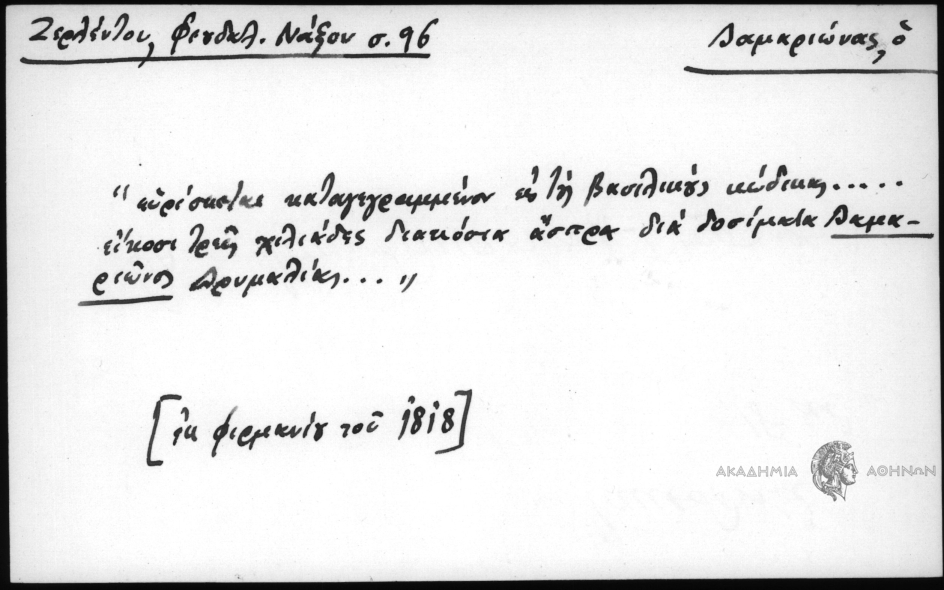 Ζερλέντου, Φεουδαλ. Νάξου σ. 96
Δαμαριώνας, ὁ
“εὑρίσκεται καταγεγραμμένον εἰς τοὺς βασιλικοὺς κώδικας.....
εἴκοσι τρεῖς χιλιάδες διακόσια ἄσπρα διά δοσίματα Δαμα-
ριῶνος Δρυμαλίας... „
[ἐκ φιρμανίου τοῦ 1818]
ΑΚΑΔΗΜΙΑ ΑΘΗΝΩΝ